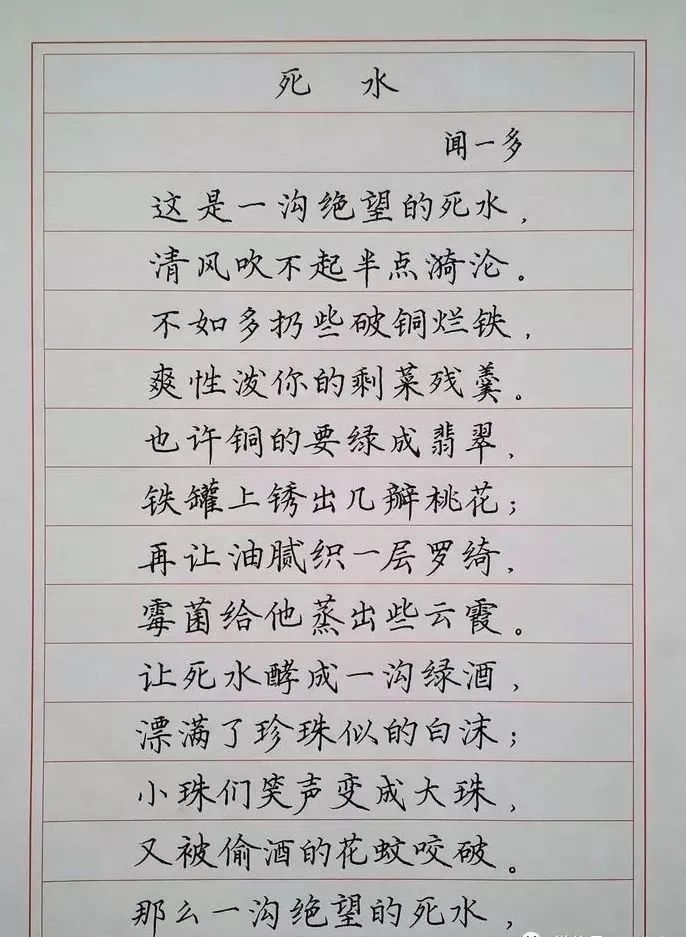 死 水
闻一多
这是一沟绝望的死水，
清风吹不起半点漪沦。
不如多扔些破铜烂铁，
爽性泼你的剩菜残羹。
也许铜的要绿成翡翠，
铁罐上锈出几瓣桃花；
再让油腻织一层罗绮，
霉菌给他蒸出些云霞。
让死水酵成一沟绿酒，
漂满了珍珠似的白沫；
小珠们笑声变成大珠，
又被偷酒的花蚊咬破。
那么一沟绝望的死水，